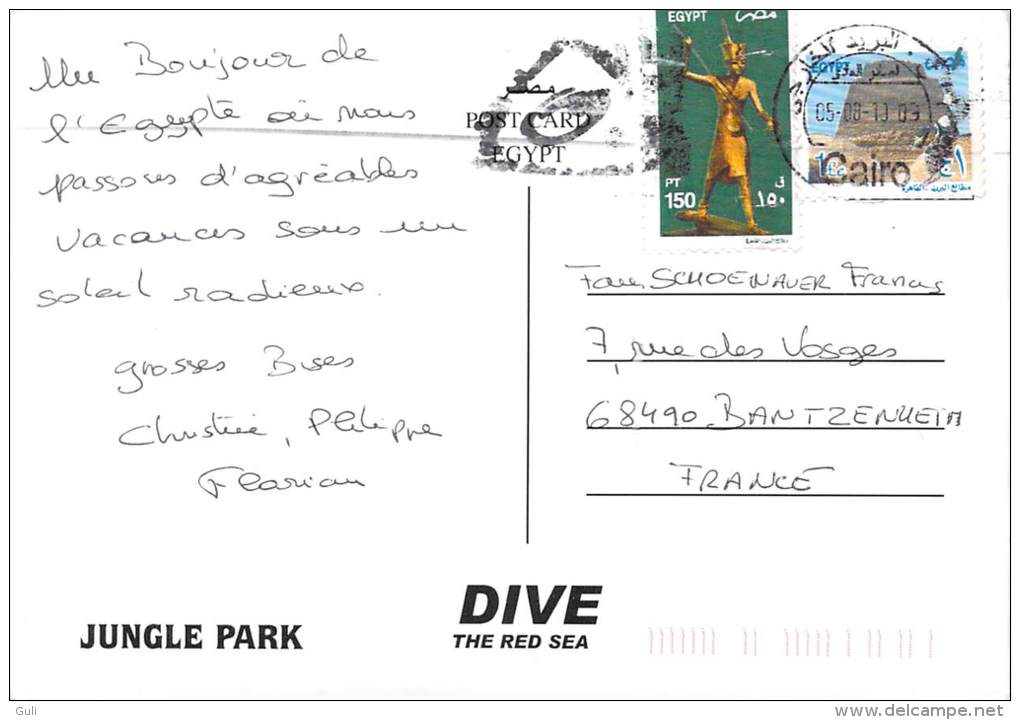 Un Bonjour de
l'Egypte où nous
passons d'agréables
vacances sous un
soleil radieux.
grosses Bises
Christine, Philippe
Florian
مصر
POST CARD
EGYPT
EGYPT مصر
PT
150
ق
١٥٠
البريد
EGYPT مصر
05-08-10 09
Cairo
1£ ج١
مطابع البريد - القاهرة
Fam SCHOENAUER Francis
7, rue des Vosges
68490 BANTZENHEIM
FRANCE
JUNGLE PARK
DIVE
THE RED SEA
Guli
delcampe.net